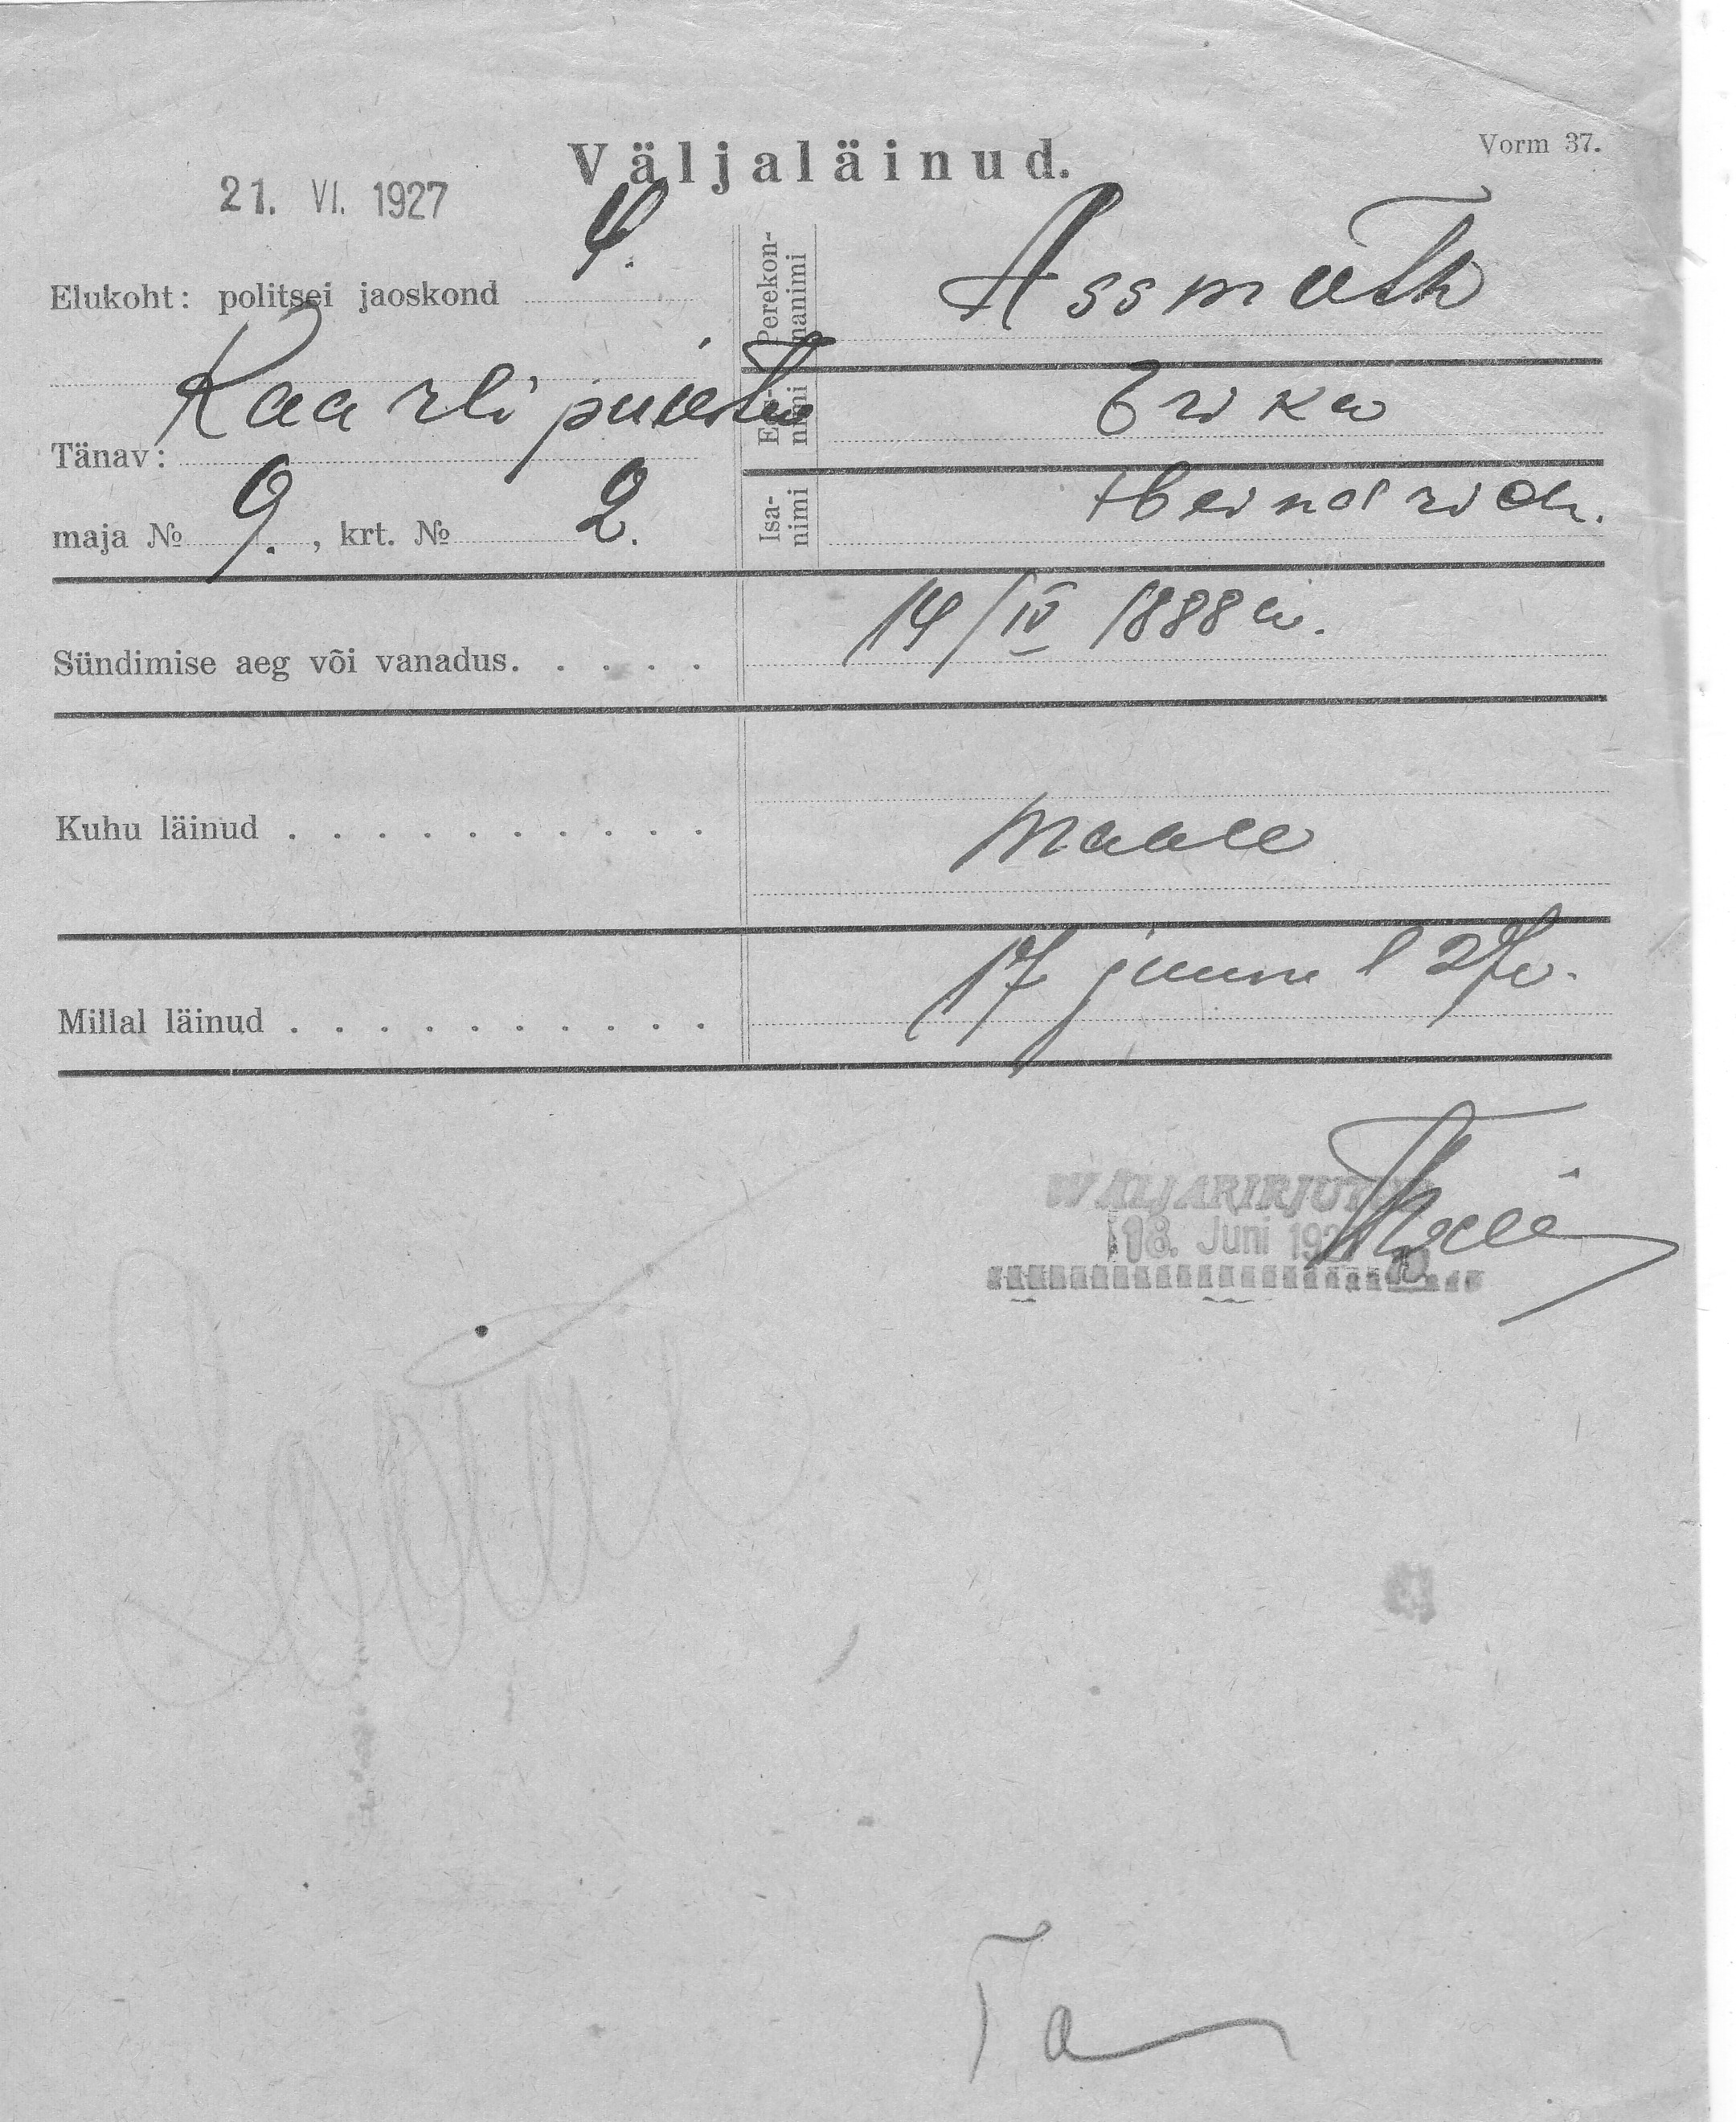 Väljaläinud.
Vorm 37.
21. VI. 1927
Elukoht: politsei jaoskond 4.
Kaarli puiestee
Tänav:
maja № 9. , krt. № 2.
Perekonnanimi Assmuth
Eesnimi Erika
Isanimi Heindrich.
Sündimise aeg või vanadus. . . . . 14/IV 1888 a.
Kuhu läinud . . . . . . . . . . Maale
Millal läinud . . . . . . . . . . 17 juunil 27 a.
WÄLJAKIRJUT
18. Juni 192